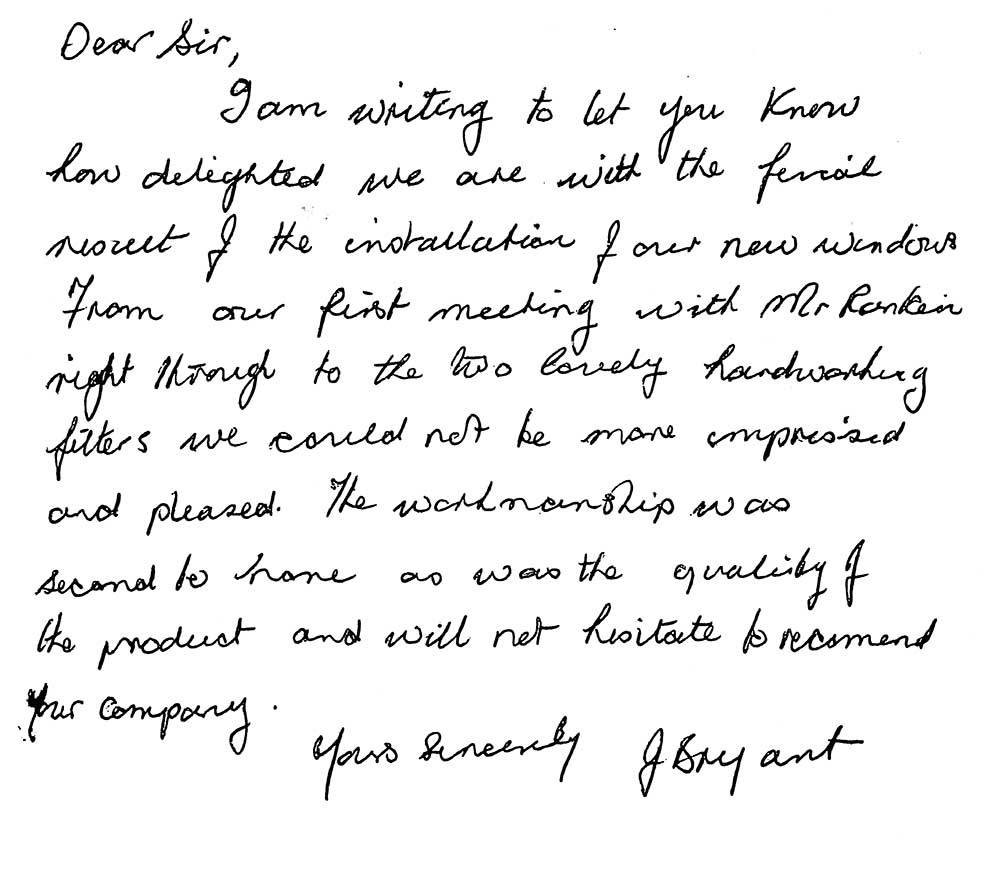 Dear Sir,
I am writing to let you know
how delighted we are with the final
result of the installation of our new windows
From our first meeting with Mr Rankin
right through to the two lovely hardworking
fitters we could not be more impressed
and pleased. The workmanship was
second to none as was the quality of
the product and will not hesitate to recomend
your company.
Yours Sincerely J Bryant